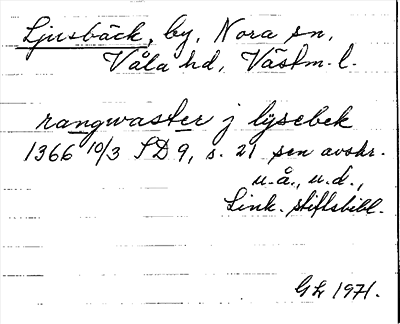 Ljusbäck, by, Nora sn,
Våla hd, Västm. l.
rangwaster j lysebek
1366 10/3 SD 9, s. 21 sen avskr.
u.å., u.d.,
Link. stiftsbibl.
1971.